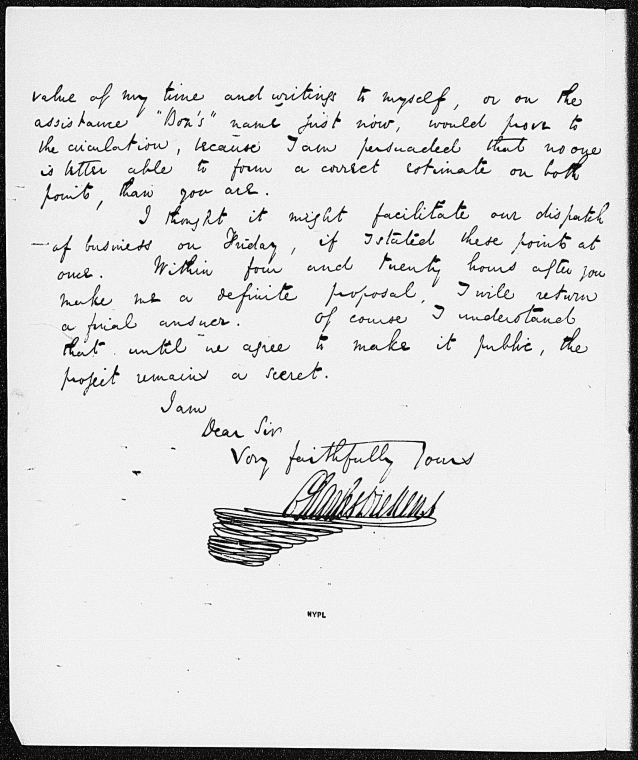 value of my time and writings to myself, or on the
assistance "Boz's" name just now, would prove to
the circulation, because I am persuaded that no one
is better able to form a correct estimate on both
points, than you are.
I thought it might facilitate our dispatch
of business on Friday, if I stated these points at
once. Within four and twenty hours after you
make me a definite proposal, I will return
a final answer. Of course I understand
that until we agree to make it public, the
project remains a secret.
I am
Dear Sir
Very faithfully Yours
Charles Dickens
NYPL